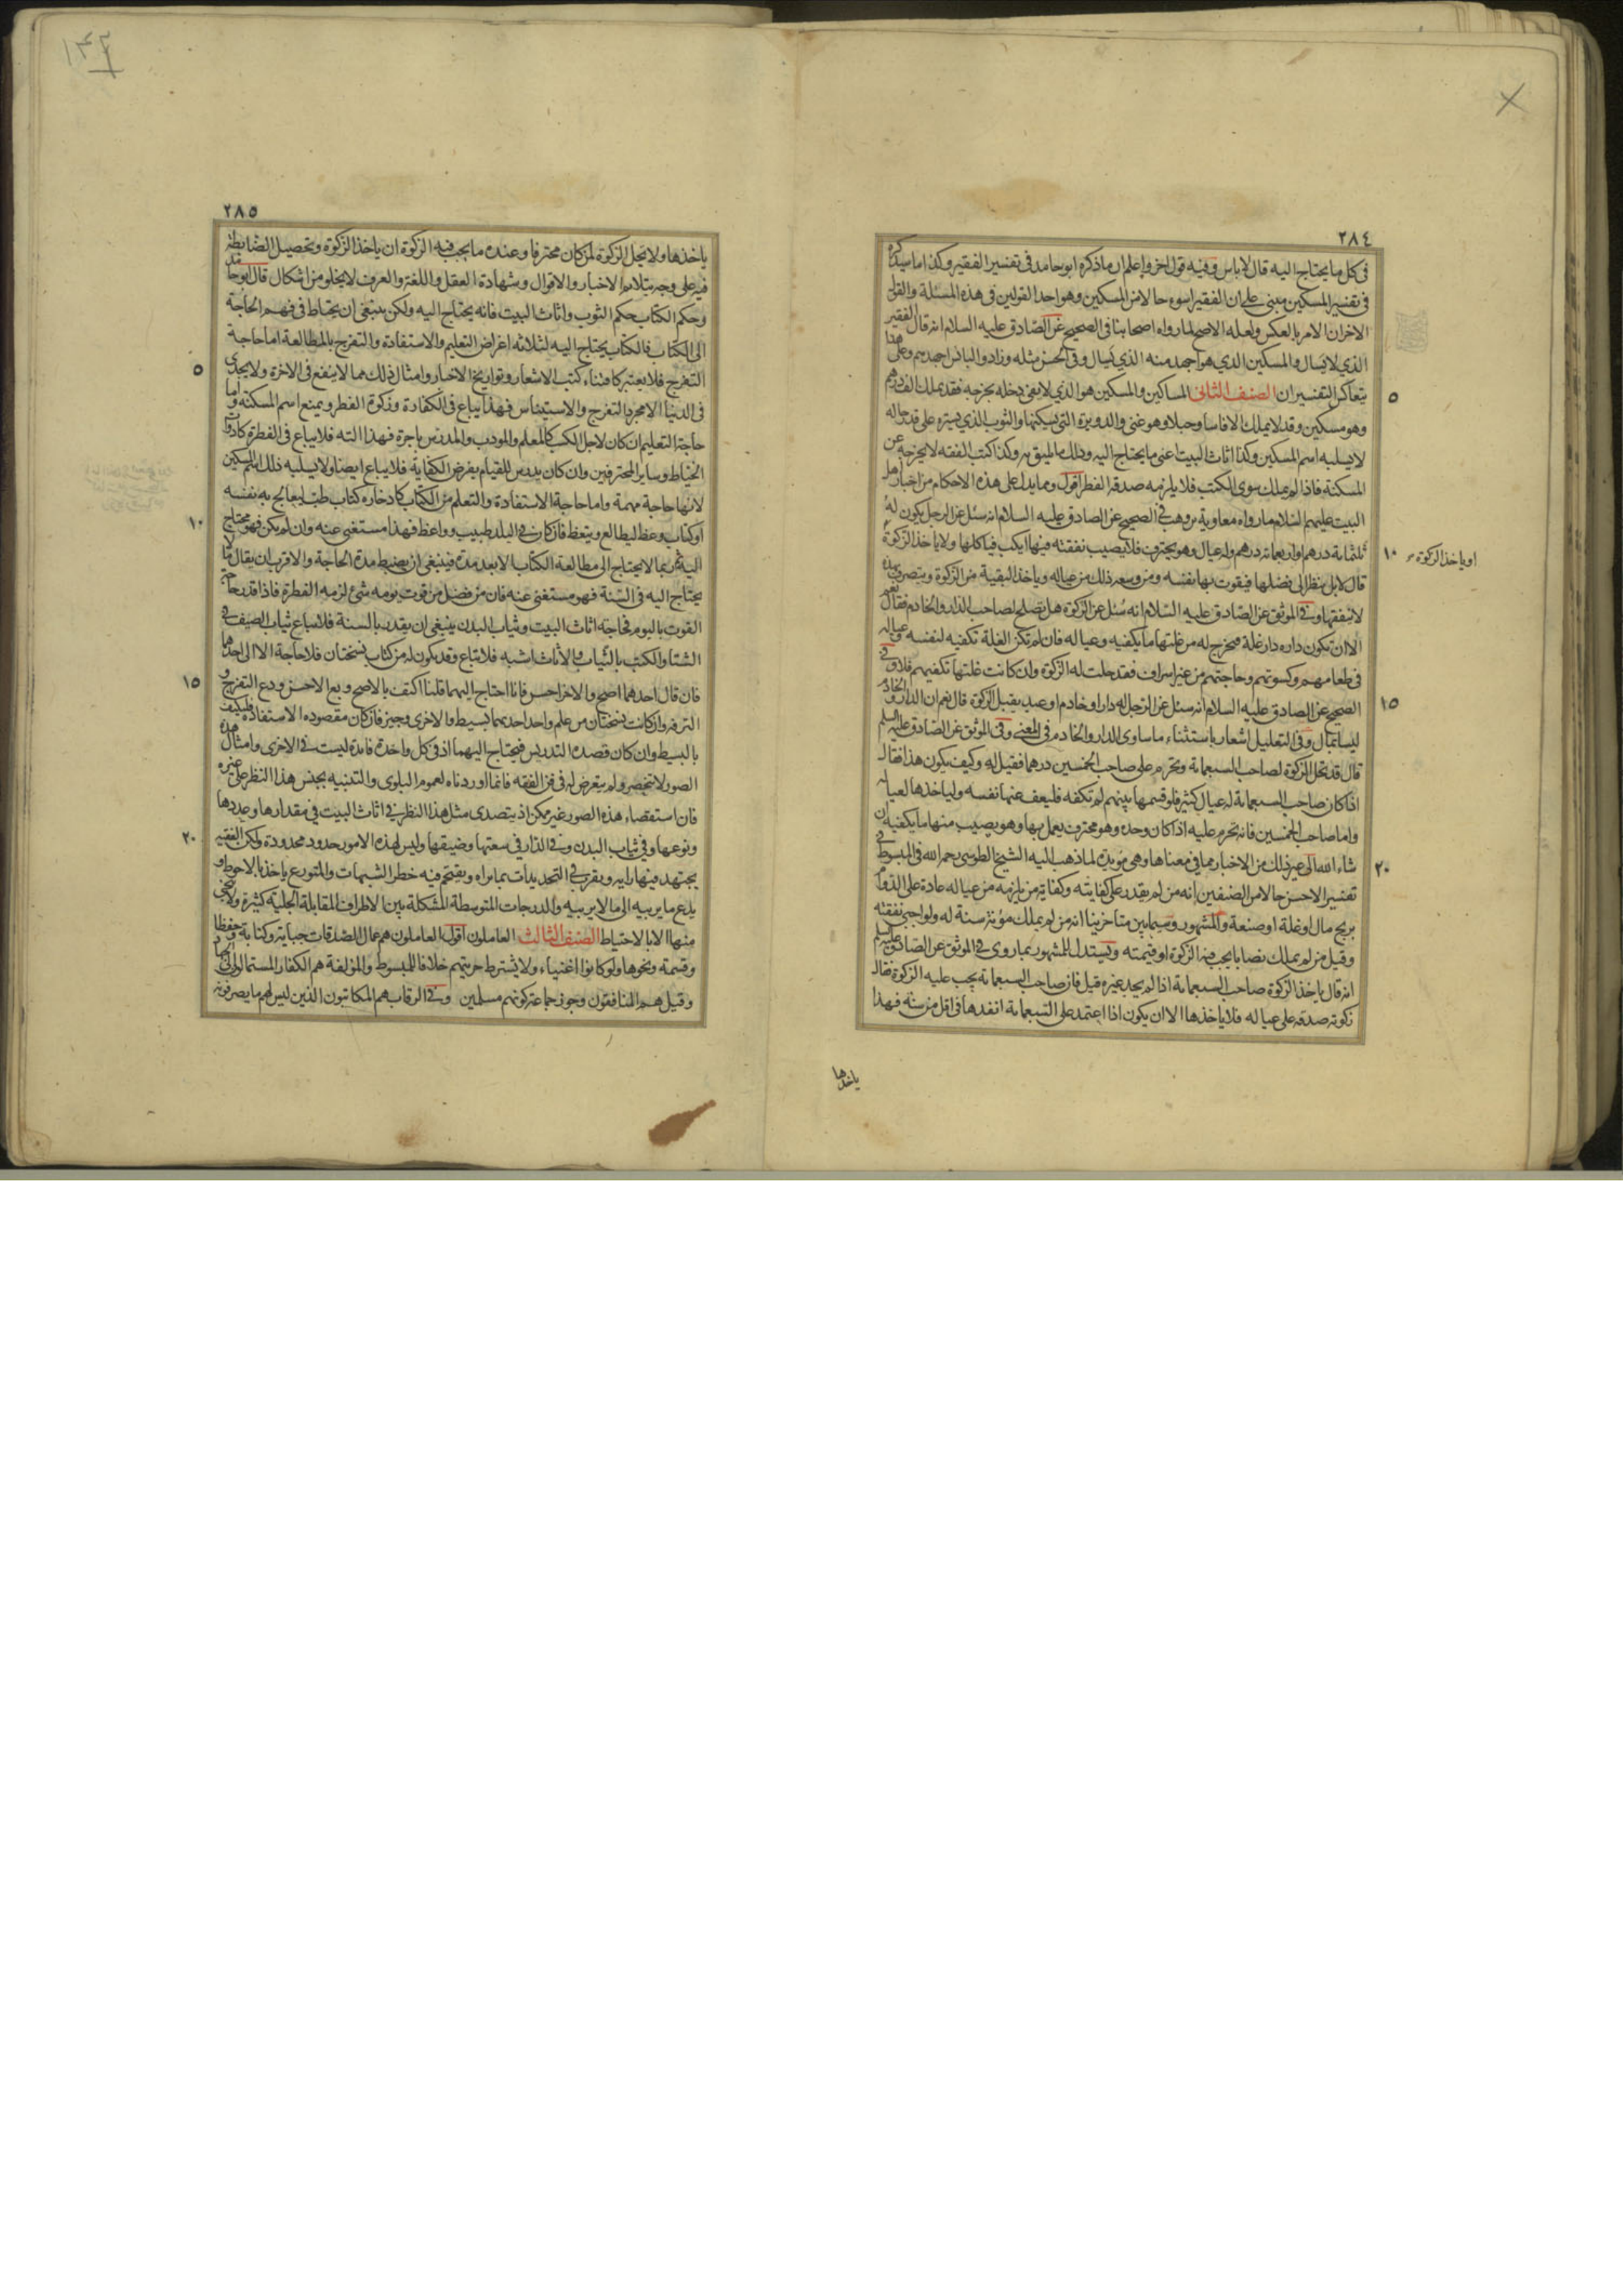 ٢٨٤
فى كل ما يحتاج اليه قال لا باس وفيه قول اخر واعلم ان ما ذكره ابو حامد فى تفسير الفقير وكذا ما سيذكره
فى تفسير المسكين مبنى على ان الفقير اسوء حالا من المسكين وهو احد القولين فى هذه المسئلة والقول
الاخر ان الامر بالعكس ولعله الاصح لما رواه اصحابنا فى الصحيح عن الصادق عليه السلام انه قال الفقير
الذي لا يسال والمسكين الذي هو اجهد منه الذي يسال وفى الحسن مثله وزاد والبائس اجهدهم وعلى هذا
يتعاكس التفسيران الصنف الثانى المساكين والمسكين هو الذي لا يفى دخله بخرجه فقد يملك الف درهم
وهو مسكين وقد لا يملك الا فاسا وحبلا وهو غنى والدويرة التى يسكنها والثوب الذي يستره على قدر حاله
لا يسلبه اسم المسكين وكذا اثاث البيت اعنى ما يحتاج اليه وذلك ما يليق به وكذا كتب الفقه لا يخرجه عن
المسكنة فاذا لم يملك سوى الكتب فلا يلزمه صدقة الفطر اقول ومما يدل على هذه الاحكام من اخبار اهل
البيت عليهم السلام ما رواه معاوية بن وهب فى الصحيح عن الصادق عليه السلام انه سئل عن الرجل يكون له
ثلثمائة درهم او اربعمائة درهم وله عيال وهو يحترف فلا يصيب نفقته فيها ايكب فياكلها ولا ياخذ الزكوة
او ياخذ الزكوة
قال لا بل ينظر الى فضلها فيقوت بها نفسه ومن وسعه ذلك من عياله وياخذ البقية من الزكوة ويتصرف بهذه
لا ينفقها وفى الموثق عن الصادق عليه السلام انه سئل عن الزكوة هل تصلح لصاحب الدار والخادم فقال نعم
الا ان تكون داره دار غلة فيخرج له من غلتها ما يكفيه وعياله فان لم تكن الغلة تكفيه لنفسه وعياله
فى طعامهم وكسوتهم وحاجتهم من غير اسراف فقد حلت له الزكوة وان كانت غلتها تكفيهم فلا وفى
الصحيح عن الصادق عليه السلام انه سئل عن الرجل له دار او خادم او عبد يقبل الزكوة قال نعم ان الدار والخادم
ليسا بمال وفى التعليل اشعار باستثناء ما ساوى الدار والخادم فى المعنى وفى الموثق عن الصادق عليه السلم
قال قد تحل الزكوة لصاحب السبعمائة وتحرم على صاحب الخمسين درهما فقيل له وكيف يكون هذا فقال
اذا كان صاحب السبعمائة له عيال كثير فلو قسمها بينهم لم تكفه فليعف عنها نفسه ولياخذها لعياله
واما صاحب الخمسين فانه تحرم عليه اذا كان وحده وهو محترف يعمل بها وهو يصيب منها ما يكفيه ان
شاء الله الى غير ذلك من الاخبار مما فى معناها وهى مؤيدة لما ذهب اليه الشيخ الطوسى رحمه الله فى المبسوط فى
تفسير الاحسن حالا من الصنفين انه من لم يقدر على كفايته وكفاية من يلزمه من عياله عادة على الدوام
بربح مال او غلة او صنعة والمشهور وسيما بين متاخرينا انه من لم يملك مؤنة سنة له ولواجبى نفقته
وقيل من لم يملك نصابا يجب فيه الزكوة او قيمته ويستدل للمشهور بما روى فى الموثق عن الصادق عليه السلم
انه قال ياخذ الزكوة صاحب السبعمائة اذا لم يجد غيره قيل فان صاحب السبعمائة يجب عليه الزكوة فقال
زكوته صدقة على عياله فلا ياخذها الا ان يكون اذا اعتمد على السبعمائة انفدها فى اقل من سنة فهذا
ياخذها
٢٨٥
ياخذها ولا تحل الزكوة لمن كان محترفا وعنده ما يجب فيه الزكوة ان ياخذ الزكوة وتحصيل الضابطة
فيه على وجه يتلاءم الاخبار والاقوال وشهادة العقل واللغة والعرف لا يخلو من اشكال قال ابو حامد
وحكم الكتاب حكم الثوب واثاث البيت فانه يحتاج اليه ولكن ينبغى ان يحتاط فى فهم الحاجة
الى الكتاب فالكتاب يحتاج اليه لثلاثة اغراض التعليم والاستفادة والتفرج بالمطالعة اما حاجة
التفرج فلا يعتبر كاقتناء كتب الاشعار وتواريخ الاخبار وامثال ذلك مما لا ينفع فى الاخرة ولا يجدى
فى الدنيا الا مجرد التفرج والاستيناس فهذا يباع فى الكفارة وزكوة الفطر ويمنع اسم المسكنة واما
حاجة التعليم ان كان لاجل الكسب كالمعلم والمودب والمدرس باجرة فهذا الته فلا يباع فى الفطرة كادوات
الخياط وساير المحترفين وان كان يدرس للقيام بفرض الكفاية فلا يباع ايضا ولا يسلبه ذلك اسم المسكين
لانها حاجة مهمة واما حاجة الاستفادة والتعلم من الكتاب كادخاره كتاب طب ليعالج به نفسه
او كتاب وعظ ليطالع ويتعظ فان كان فى البلد طبيب وواعظ فهذا مستغنى عنه وان لم يكن فهو محتاج
اليه ثم ربما لا يحتاج الى مطالعة الكتاب الا بعد مدة فينبغى ان يضبط مدة الحاجة والاقرب ان يقال ما لا
يحتاج اليه فى السنة فهو مستغنى عنه فان من فضل من قوت يومه شئ لزمه الفطرة فاذا قدر حاجة
القوت باليوم فحاجة اثاث البيت وثياب البدن ينبغى ان يقدر بالسنة فلا يباع ثياب الصيف فى
الشتا والكتب بالثياب والاثاث اشبه فلا تباع وقد يكون له من كتاب نسختان فلا حاجة الا الى احداهما
فان قال احدهما اصح والاخر احسن فانا احتاج اليهما قلنا اكتف بالاصح وبع الاحسن ودع التفرج و
الترفه وان كانت نسختان من علم واحد احديهما بسيط والاخرى وجيز فان كان مقصوده الاستفادة فليكتف
بالبسيط وان كان قصده التدريس فيحتاج اليهما اذ فى كل واحدة فائدة ليست فى الاخرى وامثال هذه
الصور لا تنحصر ولم يتعرض له فى فن الفقه فانما اوردناه لعموم البلوى والتنبيه بجنس هذا النظر على غيره
فان استقصاء هذه الصور غير ممكن اذ يتصدى مثل هذا النظر فى اثاث البيت فى مقدارها وعددها
ونوعها وفى ثياب البدن وفى الدار فى سعتها وضيقها وليس لهذه الامور حدود محدودة ولكن الفقيه
يجتهد فيها برايه ويقرب فى التحديدات بما يراه ويقتحم فيه خطر الشبهات والمتورع ياخذ بالاحوط و
يدع ما يريبه الى ما لا يريبه والدرجات المتوسطة المشكلة بين الاطراف المقابلة الجلية كثيرة ولا ينجى
منها الا بالاحتياط الصنف الثالث العاملون اقول العاملون هم عمال الصدقات جباية وكتابة وحفظا
وقسمة ونحوها ولو كانوا اغنياء ولا يشترط حريتهم خلافا للمبسوط والمؤلفة هم الكفار المستمالون الى الجهاد
وقيل هم المنافقون وجوز جماعة كونهم مسلمين وفى الرقاب هم المكاتبون الذين ليس لهم ما يصرفونه
٥
١٠
١٥
٢٠